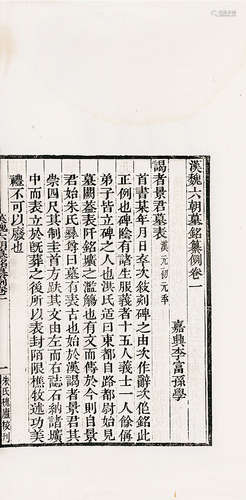 漢魏六朝墓銘纂例卷一
嘉興李富孫學
謁者景君墓表 漢元初元年
首書某年月日卒次敘刻碑之由次作辭次作銘此
正例也碑陰有諸生服義者十五人義士一人餘偁
弟子皆立碑之人也洪氏適曰東都自路都尉始見
墓闕蓋表阡銘壙之濫觴也有文而傳於今則自景
君始朱氏彝尊曰墓有表古也始於漢謁者景君其
崇四尺其制圭首方趺其文由左而右誌石納諸壙
中而表立於既葬之後所以表封陌限樵牧述功美
禮不可以廢也
漢魏六朝墓銘纂例卷一
一
朱氏槐廬校刊